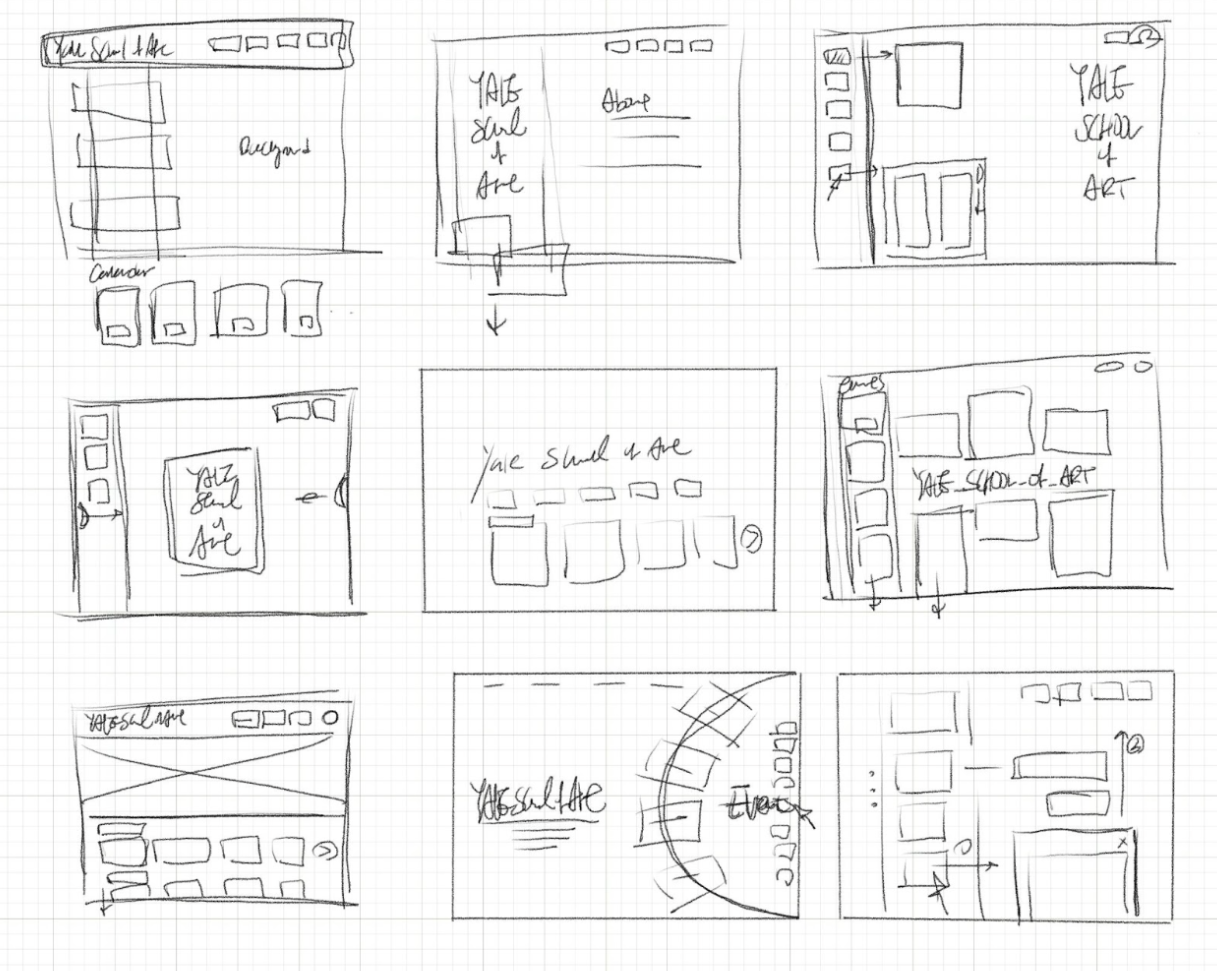 Yale School of Art
Background
Calendar
YALE
School
of
Art
About
YALE
SCHOOL
of
ART
YALE
School
of
Art
Yale School of Art
Events
YALE_SCHOOL_of_ART
YALE School of Art
YALE School of Art
Event
②
x